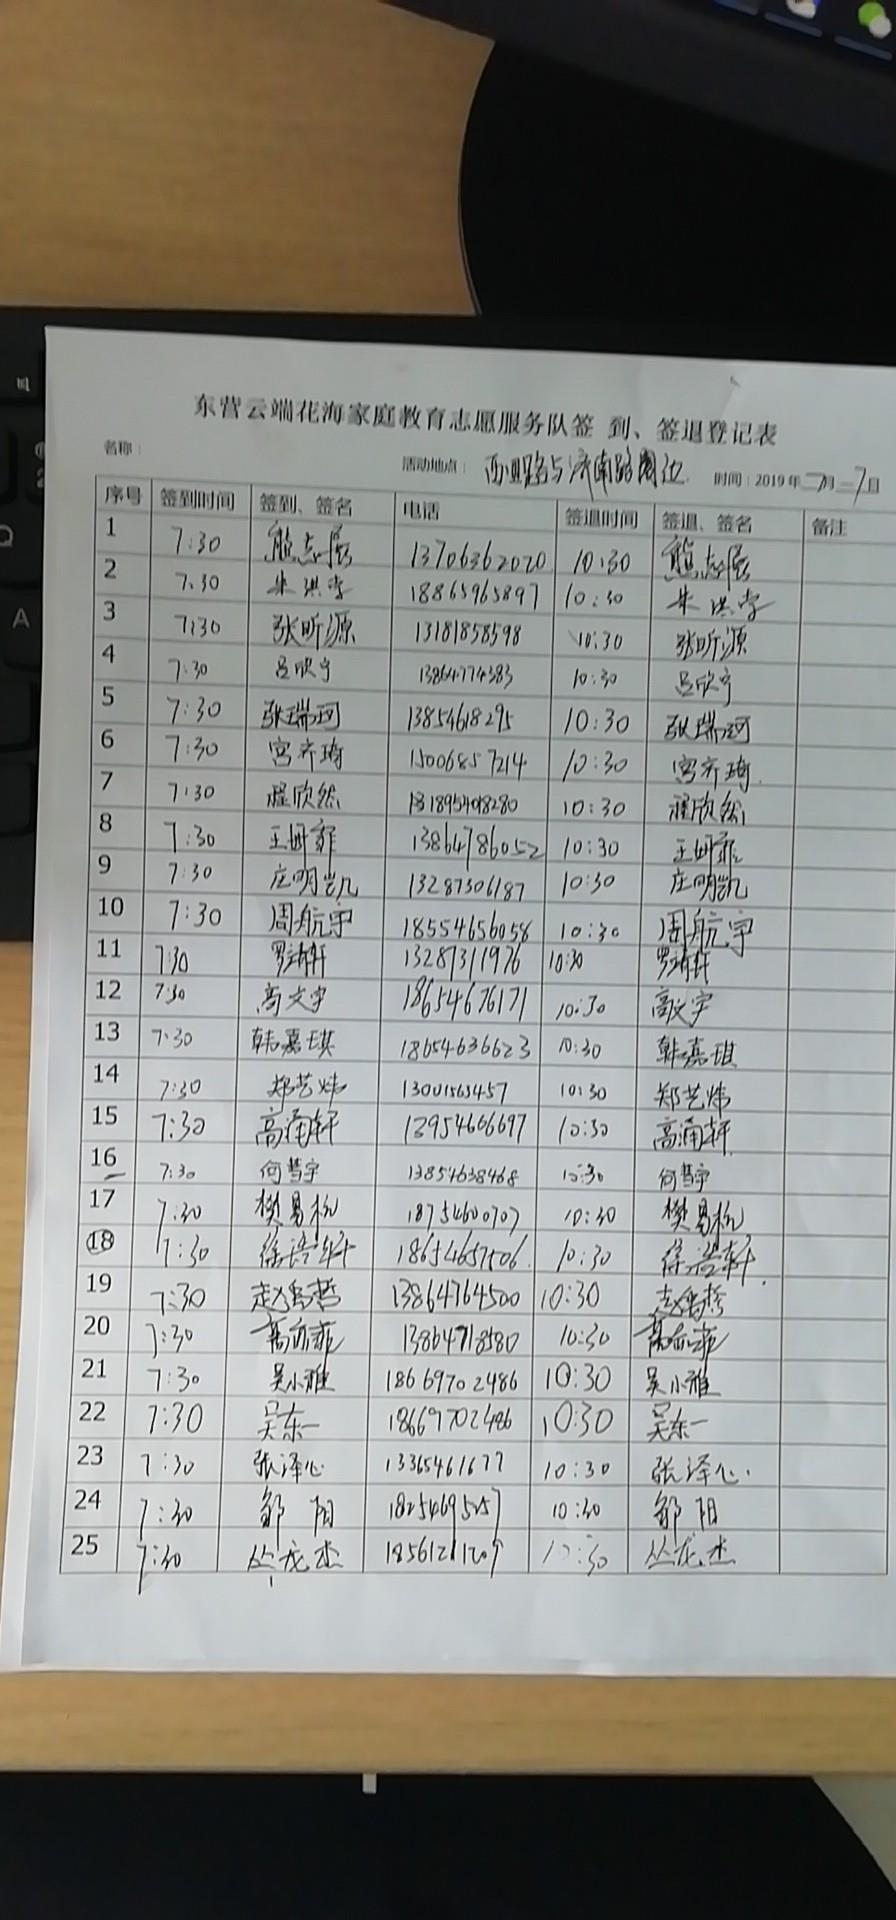 东营云端花海家庭教育志愿服务队签 到、签退登记表
名称： 活动地点： 西四路与济南路周边 时间：2019年 月 7日
序号 签到时间 签到、签名 电话 签退时间 签退、签名 备注
1 7:30 熊志展 13706362020 10:30 熊志展
2 7:30 朱洪学 18865965897 10:30 朱洪学
3 7:30 张昕源 13181858598 10:30 张昕源
4 7:30 吕欣宁 13864774383 10:30 吕欣宁
5 7:30 张瑞珂 13854618295 10:30 张瑞珂
6 7:30 宫齐琦 15006857214 10:30 宫齐琦
7 7:30 程欣然 10:30 程欣然
8 7:30 王妍菲 13864786052 10:30 王妍菲
9 7:30 庄明凯 13287306187 10:30 庄明凯
10 7:30 周航宇 18554656058 10:30 周航宇
11 7:30 罗靖轩 13287311976 10:30 罗靖轩
12 7:30 高文宇 18654676171 10:30 高文宇
13 7:30 韩嘉琪 18654636623 10:30 韩嘉琪
14 7:30 郑艺炜 13001563457 10:30 郑艺炜
15 7:30 高涌轩 13954666697 10:30 高涌轩
16 7:30 何梦宇 13854638468 10:30 何梦宇
17 7:30 樊易杭 18754600707 10:30 樊易杭
18 7:30 徐浩轩 18654657506 10:30 徐浩轩
19 7:30 13864764500 10:30
20 7:30 13864718580 10:30
21 7:30 吴小雅 18669702486 10:30 吴小雅
22 7:30 吴东一 18669702486 10:30 吴东一
23 7:30 张泽心 13365461677 10:30 张泽心
24 7:30 邹阳 10:30 邹阳
25 7:30 丛龙杰 18561211209 10:30 丛龙杰